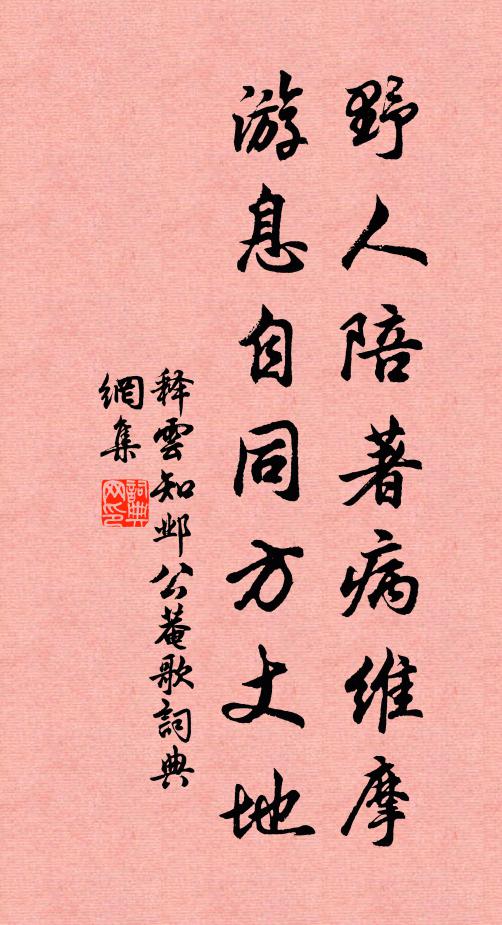 野人陪著病維摩
游息自同方丈地
释雲知邺公菴歌詞典
網集
詞典網印